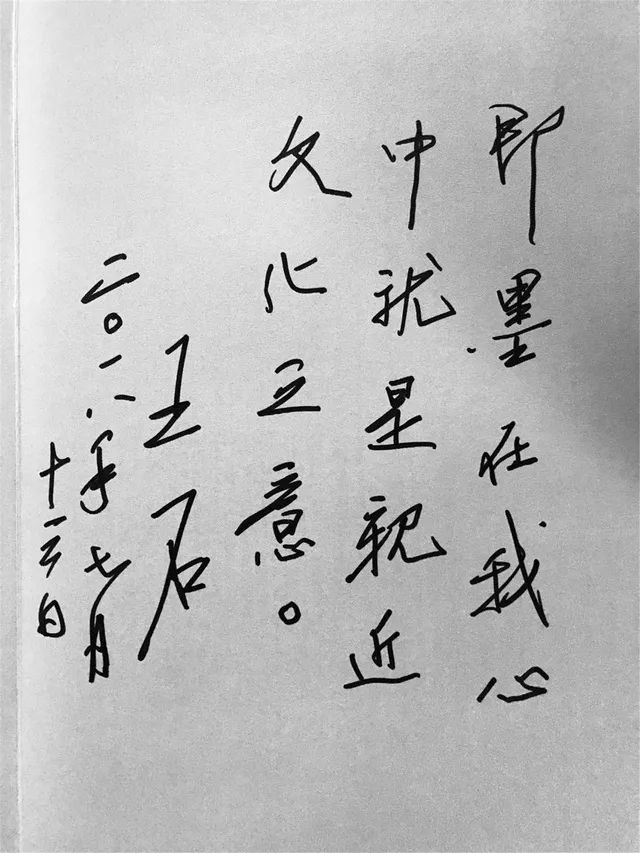 即墨在我心
中就是親近
文化之意。
王石
二〇一八年七月
十三日